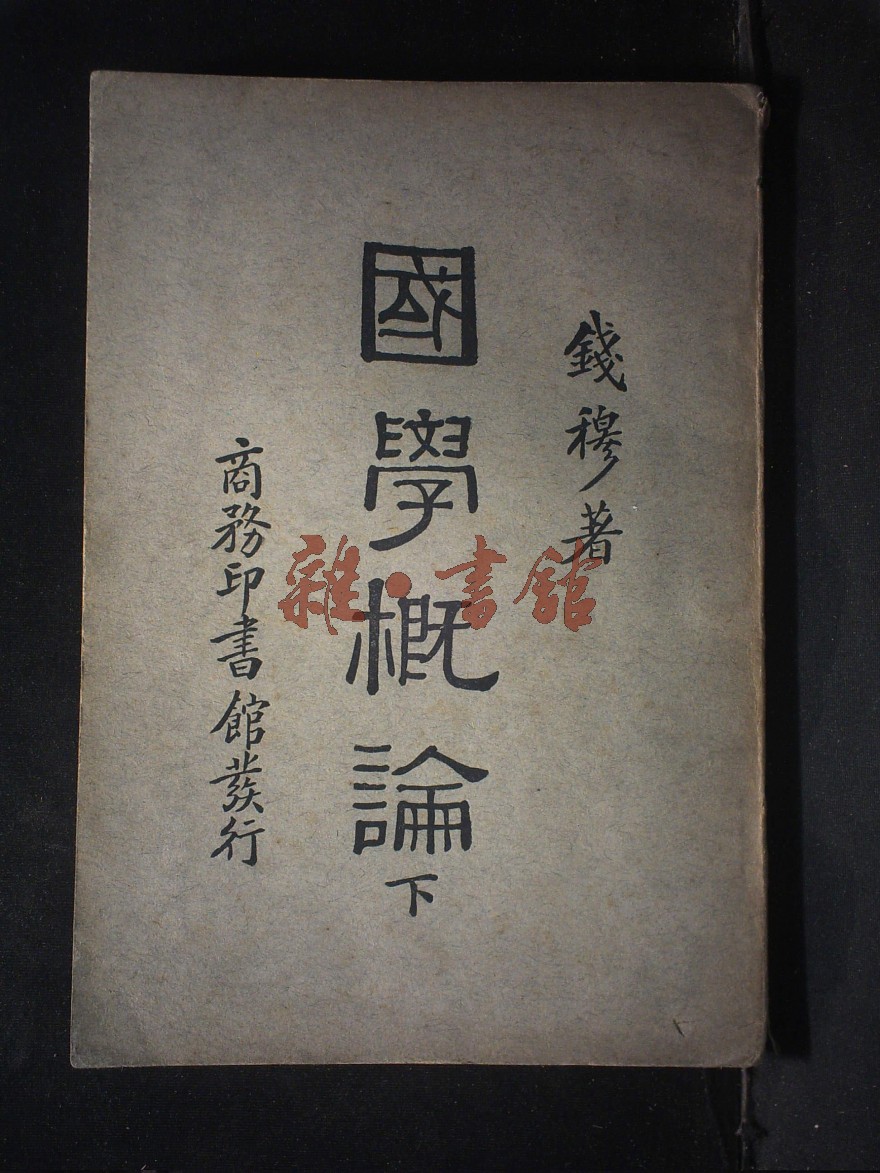 錢穆著
國學概論下
商務印書館發行
雜·書館